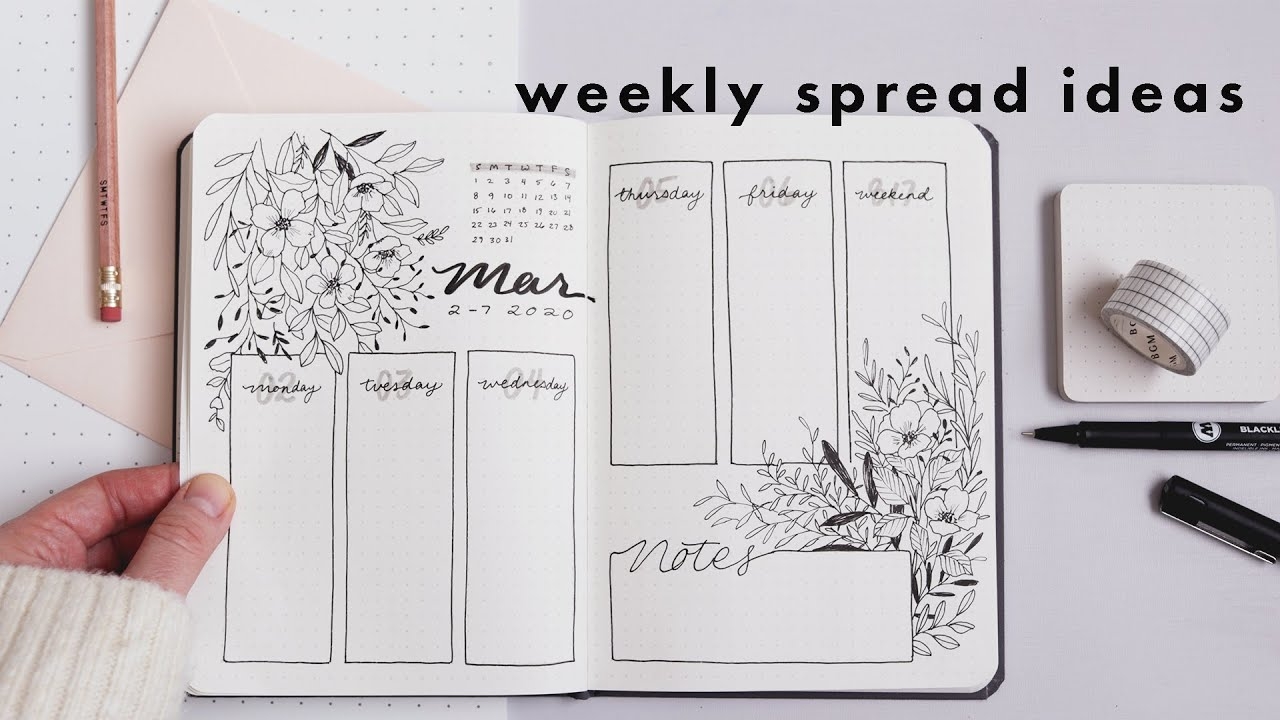 weekly spread ideas
SMTWTFS
S M T W T F S
1 2 3 4 5 6 7
8 9 10 11 12 13 14
15 16 17 18 19 20 21
22 23 24 25 26 27 28
29 30 31
Mar.
2-7 2020
monday 02
tuesday 03
wednesday 04
thursday 05
friday 06
weekend
Notes
BGM
BGM
BLACKL
PERMANENT · PIGMEN